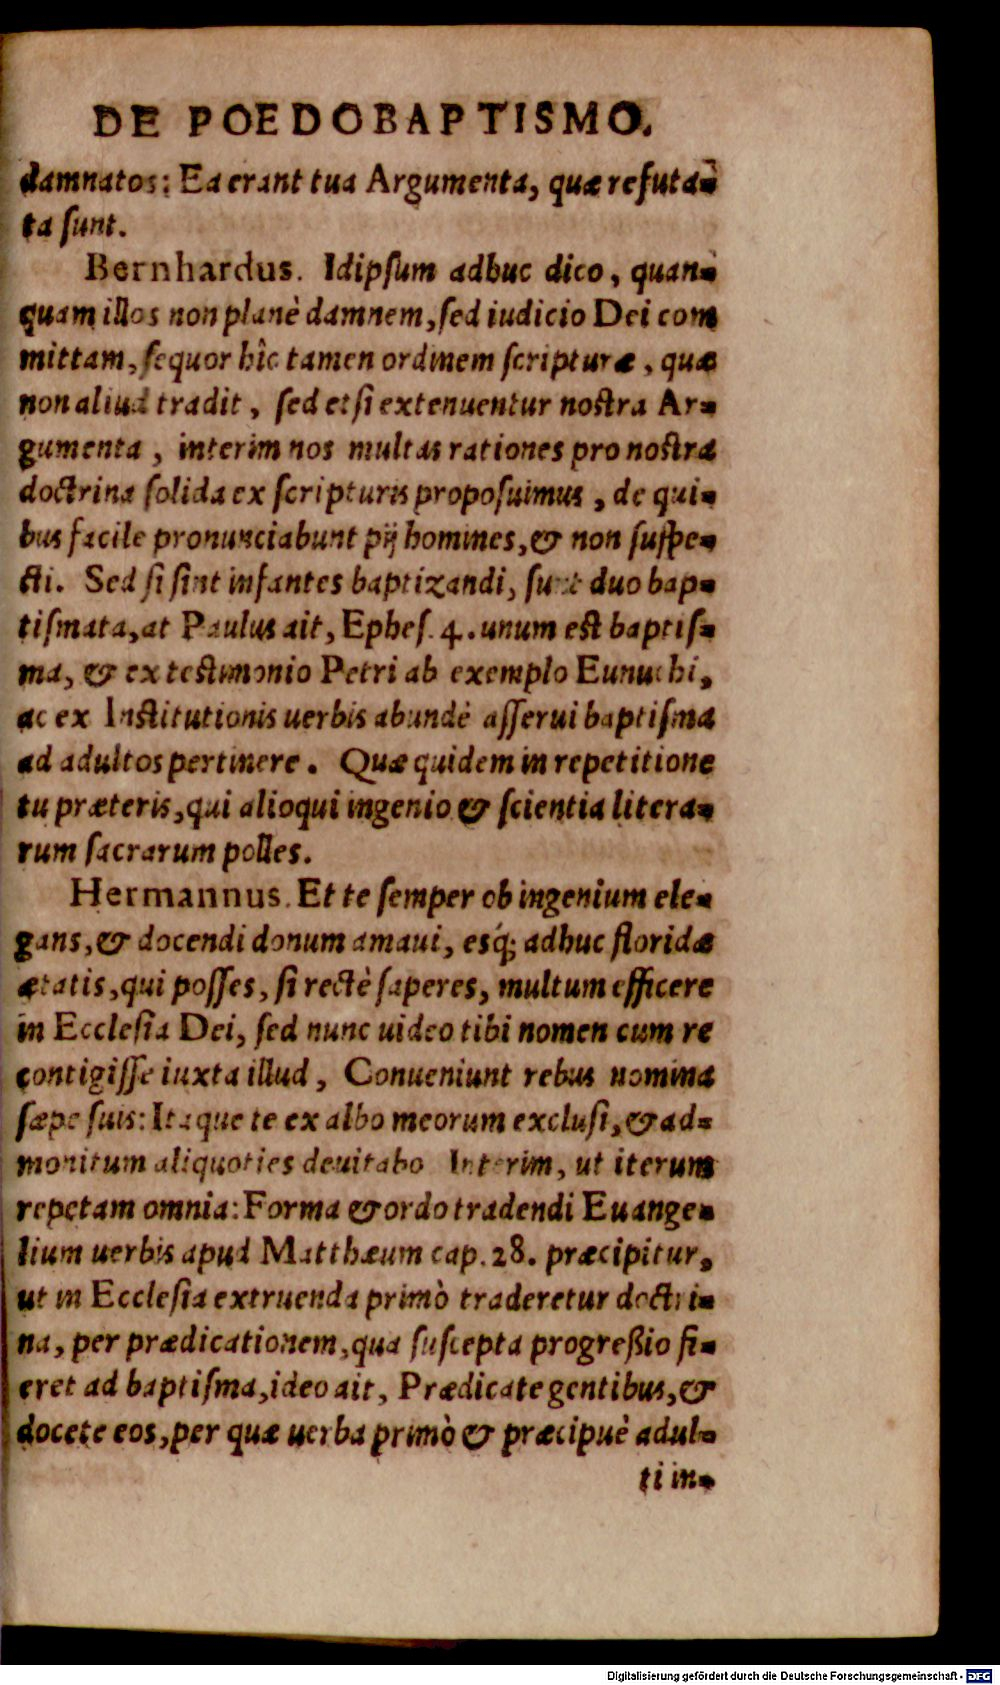 DE POEDOBAPTISMO.
damnatos: Ea erant tua Argumenta, quæ refuta-
ta ſunt.
Bernhardus. Idipſum adhuc dico, quan-
quam illos non planè damnem, ſed iudicio Dei com
mittam, ſequor hîc tamen ordinem ſcripturæ, quæ
non aliud tradit, ſed etſi extenuentur noſtra Ar-
gumenta, interim nos multas rationes pro noſtra
doctrina ſolida ex ſcripturis propoſuimus, de qui-
bus facile pronunciabunt pij homines, & non ſuſpe-
cti. Sed ſi ſint infantes baptizandi, ſunt duo bap-
tiſmata, at Paulus ait, Epheſ. 4. unum eſt baptiſ-
ma, & ex teſtimonio Petri ab exemplo Eunuchi,
ac ex Inſtitutionis uerbis abundè aſſerui baptiſma
ad adultos pertinere. Quæ quidem in repetitione
tu præteris, qui alioqui ingenio & ſcientia litera-
rum ſacrarum polles.
Hermannus. Et te ſemper ob ingenium ele-
gans, & docendi donum amaui, esq́; adhuc floridæ
ætatis, qui poſſes, ſi rectè ſaperes, multum efficere
in Eccleſia Dei, ſed nunc uideo tibi nomen cum re
contigiſſe iuxta illud, Conueniunt rebus nomina
ſæpe ſuis: Itaque te ex albo meorum excluſi, & ad-
monitum aliquoties deuitabo Interim, ut iterum
repetam omnia: Forma & ordo tradendi Euange-
lium uerbis apud Matthæum cap. 28. præcipitur,
ut in Eccleſia extruenda primò traderetur doctri-
na, per prædicationem, qua ſuſcepta progreßio fi-
eret ad baptiſma, ideo ait, Prædicate gentibus, &
docete eos, per quæ uerba primò & præcipuè adul-
ti in-
Digitalisierung gefördert durch die Deutsche Forschungsgemeinschaft - DFG